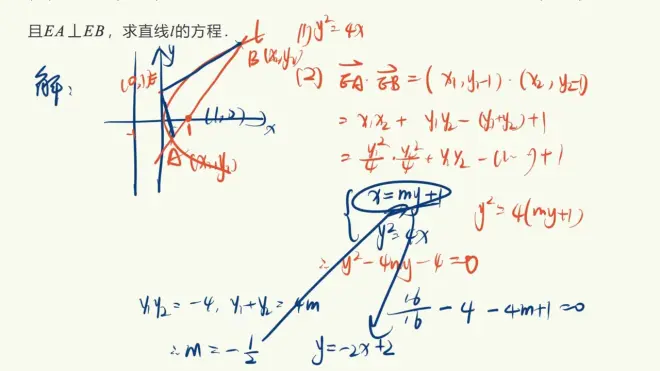 且EA⊥EB，求直线l的方程．
解：
(1) y²=4x
y
l
B(x₁,y₂)
(0,1)E
(1,0)
1
x
A(x₁,y₂)
(2) EA·EB=(x₁,y₁-1)·(x₂,y₂-1)
=x₁x₂+y₁y₂-(y₁+y₂)+1
=y₁²/4·y₂²/4+y₁y₂-(~)+1
x=my+1
y²=4x
y²=4(my+1)
∴y²-4my-4=0
y₁y₂=-4, y₁+y₂=4m
16/16-4-4m+1=0
∴m=-1/2
y=-2x+2